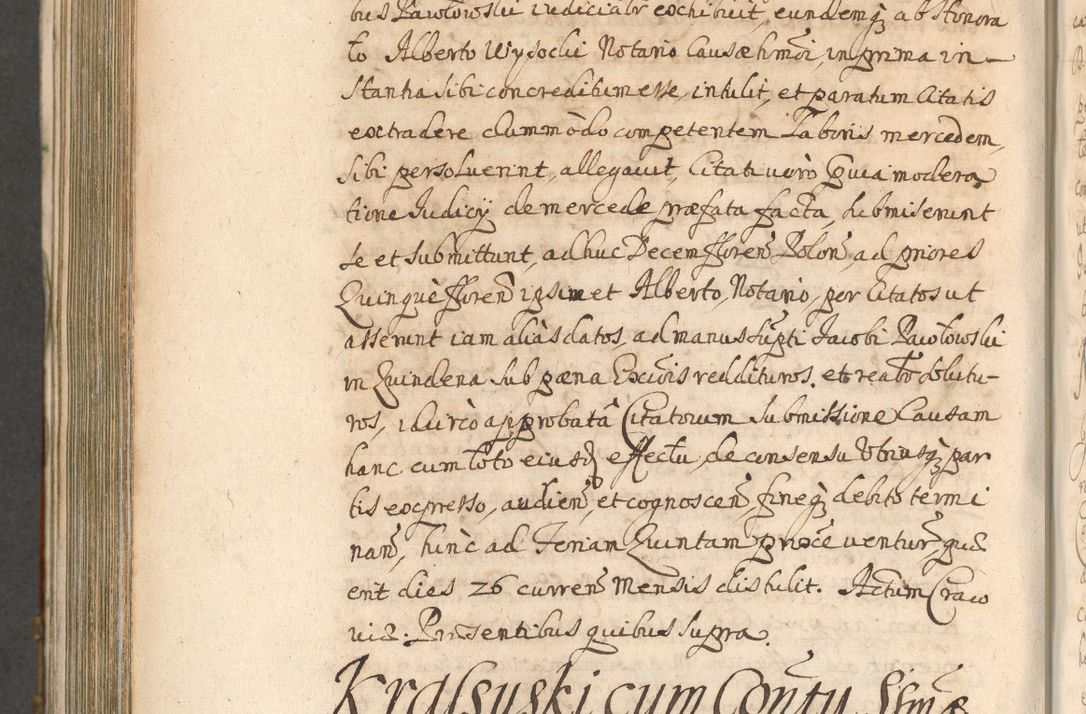 bus Pawłowski iudicialr exchibuit, eundemq; ab Honora
to Alberto Wysocki Notario Causæ hmoi, in prima in-
stantia sibi concreditum esse, intulit, et paratum Citatis
extradere dummodo competentem Laboris mercedem,
sibi persoluerint, allegavit, Citati vero Quia modera
tione Iudicij de mercede præfata facta, submiserunt
se et submittunt, adhuc Decem floren Polon ad priores
Quinque floren ipsimet Alberto, Notario, per Citatos ut
asserunt iam alias datos, ad manus supti Jacobi Pawłowski
in Quindena sub pæna Excois reddituros et realr soluтu-
ros, idcirco approbata Citatorum submissione Causam
hanc cum toto eiusd effectu, de consensu Vtriusq; par
tis expresso, audien, et cognoscen, fineq; debito termi
nan, hinc ad Feriam Quintam proxe ventur, quæ
erit dies 26 curren Mensis distulit. Actum Craco
viæ. Præsentibus quibus supra
Kralsuski cum Contu Ssmæ